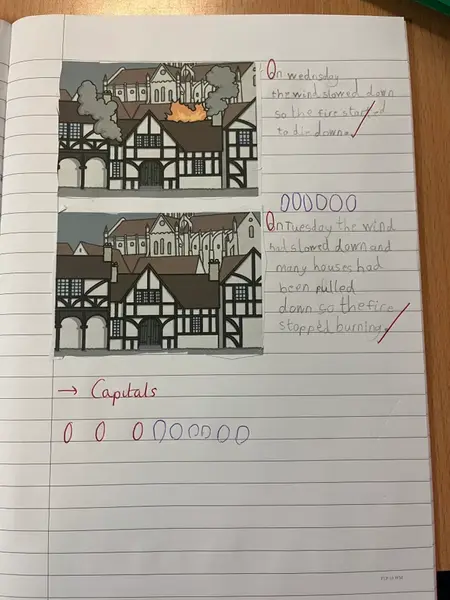 On wednsday
the wind slowed down
so the fire started
to die down.
OOOOOO
On Tuesday the wind
had slowed down and
many houses had
been pulled
down so the fire
stopped burning.
→ Capitals
O O O O O O O O O